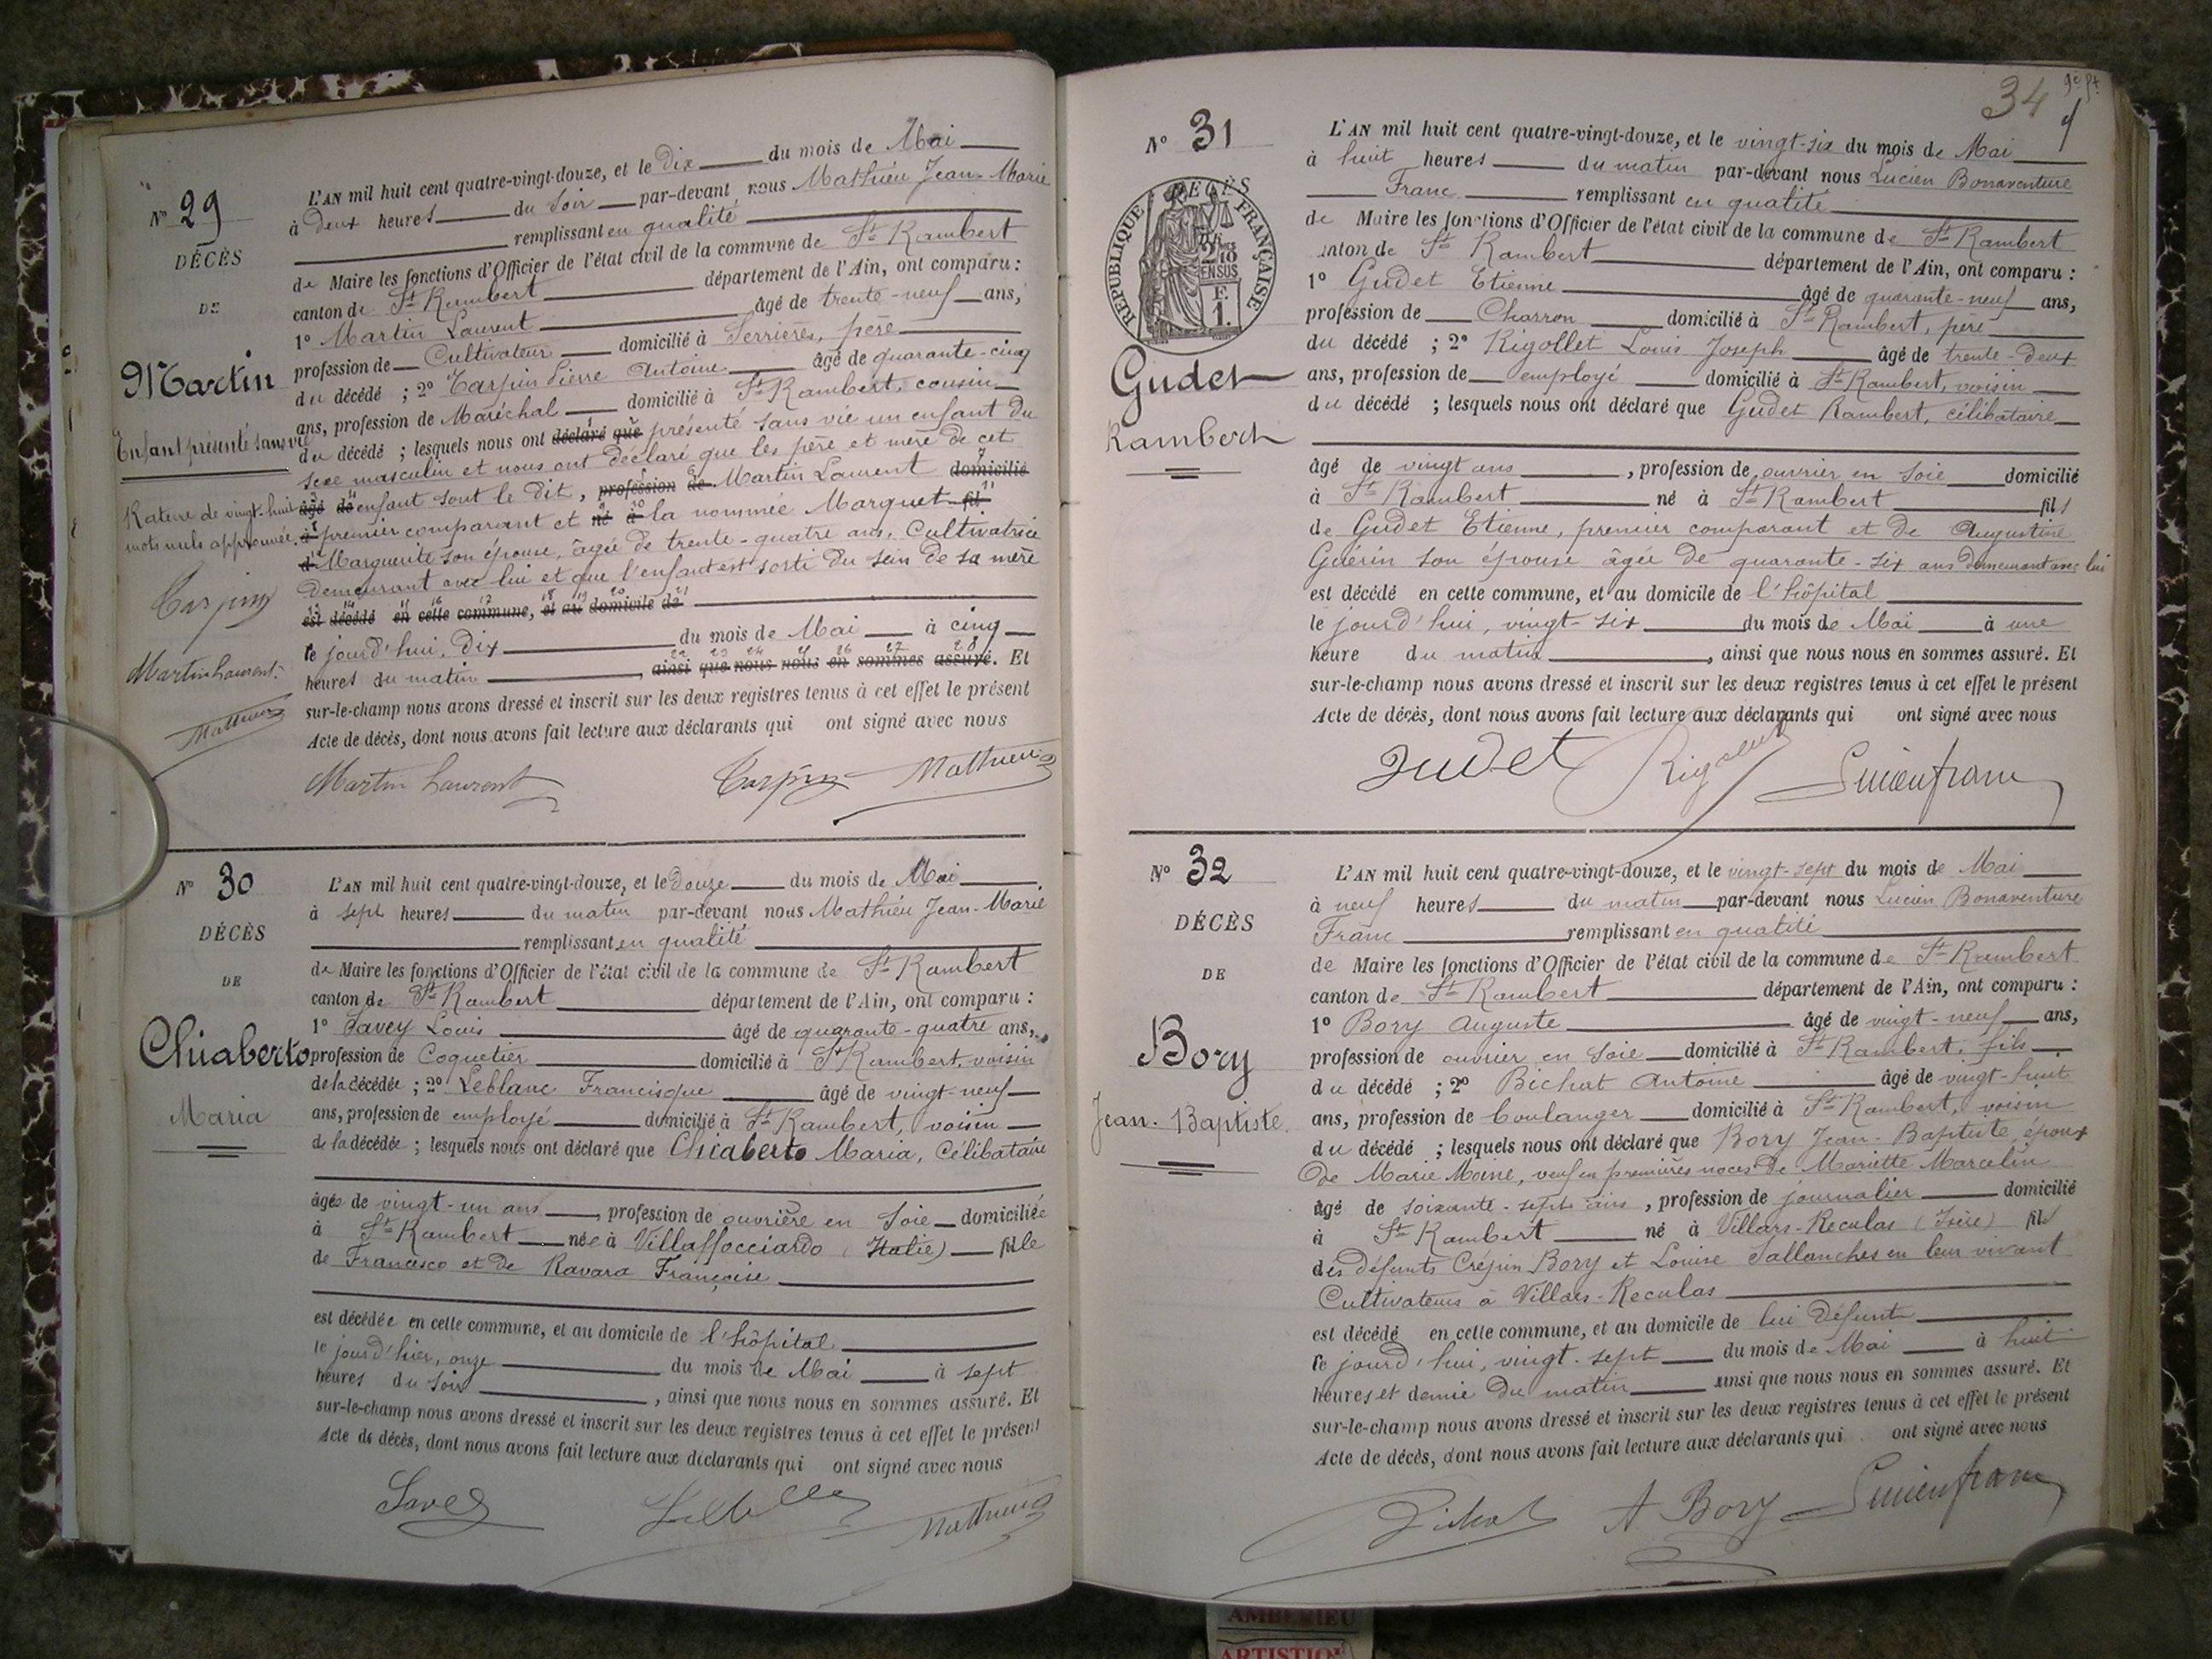 N° 29
DÉCÈS
DE
Martin
Enfant présenté sans vie
Rature de vingt-huit
mots nuls approuvée.
Tarpin
Martin Laurent
Mathieu
L'AN mil huit cent quatre-vingt-douze, et le dix du mois de Mai
à deux heures du soir par-devant nous Mathieu Jean-Marie
remplissant en qualité
de Maire les fonctions d'Officier de l'état civil de la commune de St Rambert
canton de St Rambert département de l'Ain, ont comparu :
1° Martin Laurent âgé de trente-neuf ans,
profession de Cultivateur domicilié à Serrières, père
du décédé ; 2° Tarpin Pierre Antoine âgé de quarante-cinq
ans, profession de Maréchal domicilié à St Rambert, cousin
du décédé ; lesquels nous ont déclaré que présenté sans vie un enfant du
sexe masculin et nous ont déclaré que les père et mère de cet
âgé de enfant sont le dit, profession de Martin Laurent domicilié
à premier comparant et né à la nommée Marguet fil
d Marguerite son épouse, âgée de trente-quatre ans, Cultivatrice
demeurant avec lui et que l'enfant est sorti du sein de sa mère
est décédé en cette commune, et au domicile de
le jourd'hui, dix du mois de Mai à cinq
heures du matin, ainsi que nous nous en sommes assuré. Et
sur-le-champ nous avons dressé et inscrit sur les deux registres tenus à cet effet le présent
Acte de décès, dont nous avons fait lecture aux déclarants qui ont signé avec nous
Martin Laurent Tarpin Mathieu
N° 30
DÉCÈS
DE
Chiaberto
Maria
L'AN mil huit cent quatre-vingt-douze, et le douze du mois de Mai
à sept heures du matin par-devant nous Mathieu Jean-Marie
remplissant en qualité
de Maire les fonctions d'Officier de l'état civil de la commune de St Rambert
canton de St Rambert département de l'Ain, ont comparu :
1° Savey Louis âgé de quarante-quatre ans,
profession de Coquetier domicilié à St Rambert, voisin
de la décédée ; 2° Leblanc Francisque âgé de vingt-neuf
ans, profession de employé domicilié à St Rambert, voisin
de la décédée ; lesquels nous ont déclaré que Chiaberto Maria, Célibataire
âgée de vingt-un ans, profession de ouvrière en Soie domiciliée
à St Rambert née à Villaffocciardo (Italie) fille
de Francisco et de Ravara Françoise
est décédée en cette commune, et au domicile de l'hôpital
le jourd'hier, onze du mois de Mai à sept
heures du soir, ainsi que nous nous en sommes assuré. Et
sur-le-champ nous avons dressé et inscrit sur les deux registres tenus à cet effet le présent
Acte de décès, dont nous avons fait lecture aux déclarants qui ont signé avec nous
Savey Mathieu
34
N° 31
RÉPUBLIQUE FRANÇAISE
2/10 EN SUS
F. 1.
Gudet
Rambert
L'AN mil huit cent quatre-vingt-douze, et le vingt-six du mois de Mai
à huit heures du matin par-devant nous Lucien Bonaventure
Franc remplissant en qualité
de Maire les fonctions d'Officier de l'état civil de la commune de St Rambert
anton de St Rambert département de l'Ain, ont comparu :
1° Gudet Etienne âgé de quarante-neuf ans,
profession de Charron domicilié à St Rambert, père
du décédé ; 2° Rigollet Louis Joseph âgé de trente-deux
ans, profession de employé domicilié à St Rambert, voisin
du décédé ; lesquels nous ont déclaré que Gudet Rambert, célibataire
âgé de vingt ans, profession de ouvrier en soie domicilié
à St Rambert né à St Rambert fils
de Gudet Etienne, premier comparant et de Augustine
Guérin son épouse âgée de quarante-six ans demeurant avec lui
est décédé en cette commune, et au domicile de l'hôpital
le jourd'hui, vingt-six du mois de Mai à une
heure du matin, ainsi que nous nous en sommes assuré. Et
sur-le-champ nous avons dressé et inscrit sur les deux registres tenus à cet effet le présent
Acte de décès, dont nous avons fait lecture aux déclarants qui ont signé avec nous
Gudet Rigollet Lucien franc
N° 32
DÉCÈS
DE
Bory
Jean-Baptiste
L'AN mil huit cent quatre-vingt-douze, et le vingt-sept du mois de Mai
à neuf heures du matin par-devant nous Lucien Bonaventure
Franc remplissant en qualité
de Maire les fonctions d'Officier de l'état civil de la commune de St Rambert
canton de St Rambert département de l'Ain, ont comparu :
1° Bory Auguste âgé de vingt-neuf ans,
profession de ouvrier en soie domicilié à St Rambert, fils
du décédé ; 2° Bichat Antoine âgé de vingt-huit
ans, profession de boulanger domicilié à St Rambert, voisin
du décédé ; lesquels nous ont déclaré que Bory Jean-Baptiste, époux
de Marie Moine, veuf en premières noces de Mariette Marcelin
âgé de soixante-sept ans, profession de journalier domicilié
à St Rambert né à Villars-Reculas (Isère) fils
des défunts Crépin Bory et Louise Sallanches en leur vivant
Cultivateurs à Villars-Reculas
est décédé en cette commune, et au domicile de lui défunt
le jourd'hui, vingt-sept du mois de Mai à huit
heures et demie du matin ainsi que nous nous en sommes assuré. Et
sur-le-champ nous avons dressé et inscrit sur les deux registres tenus à cet effet le présent
Acte de décès, dont nous avons fait lecture aux déclarants qui ont signé avec nous
Bichat A Bory Lucien franc
AMBERIEU